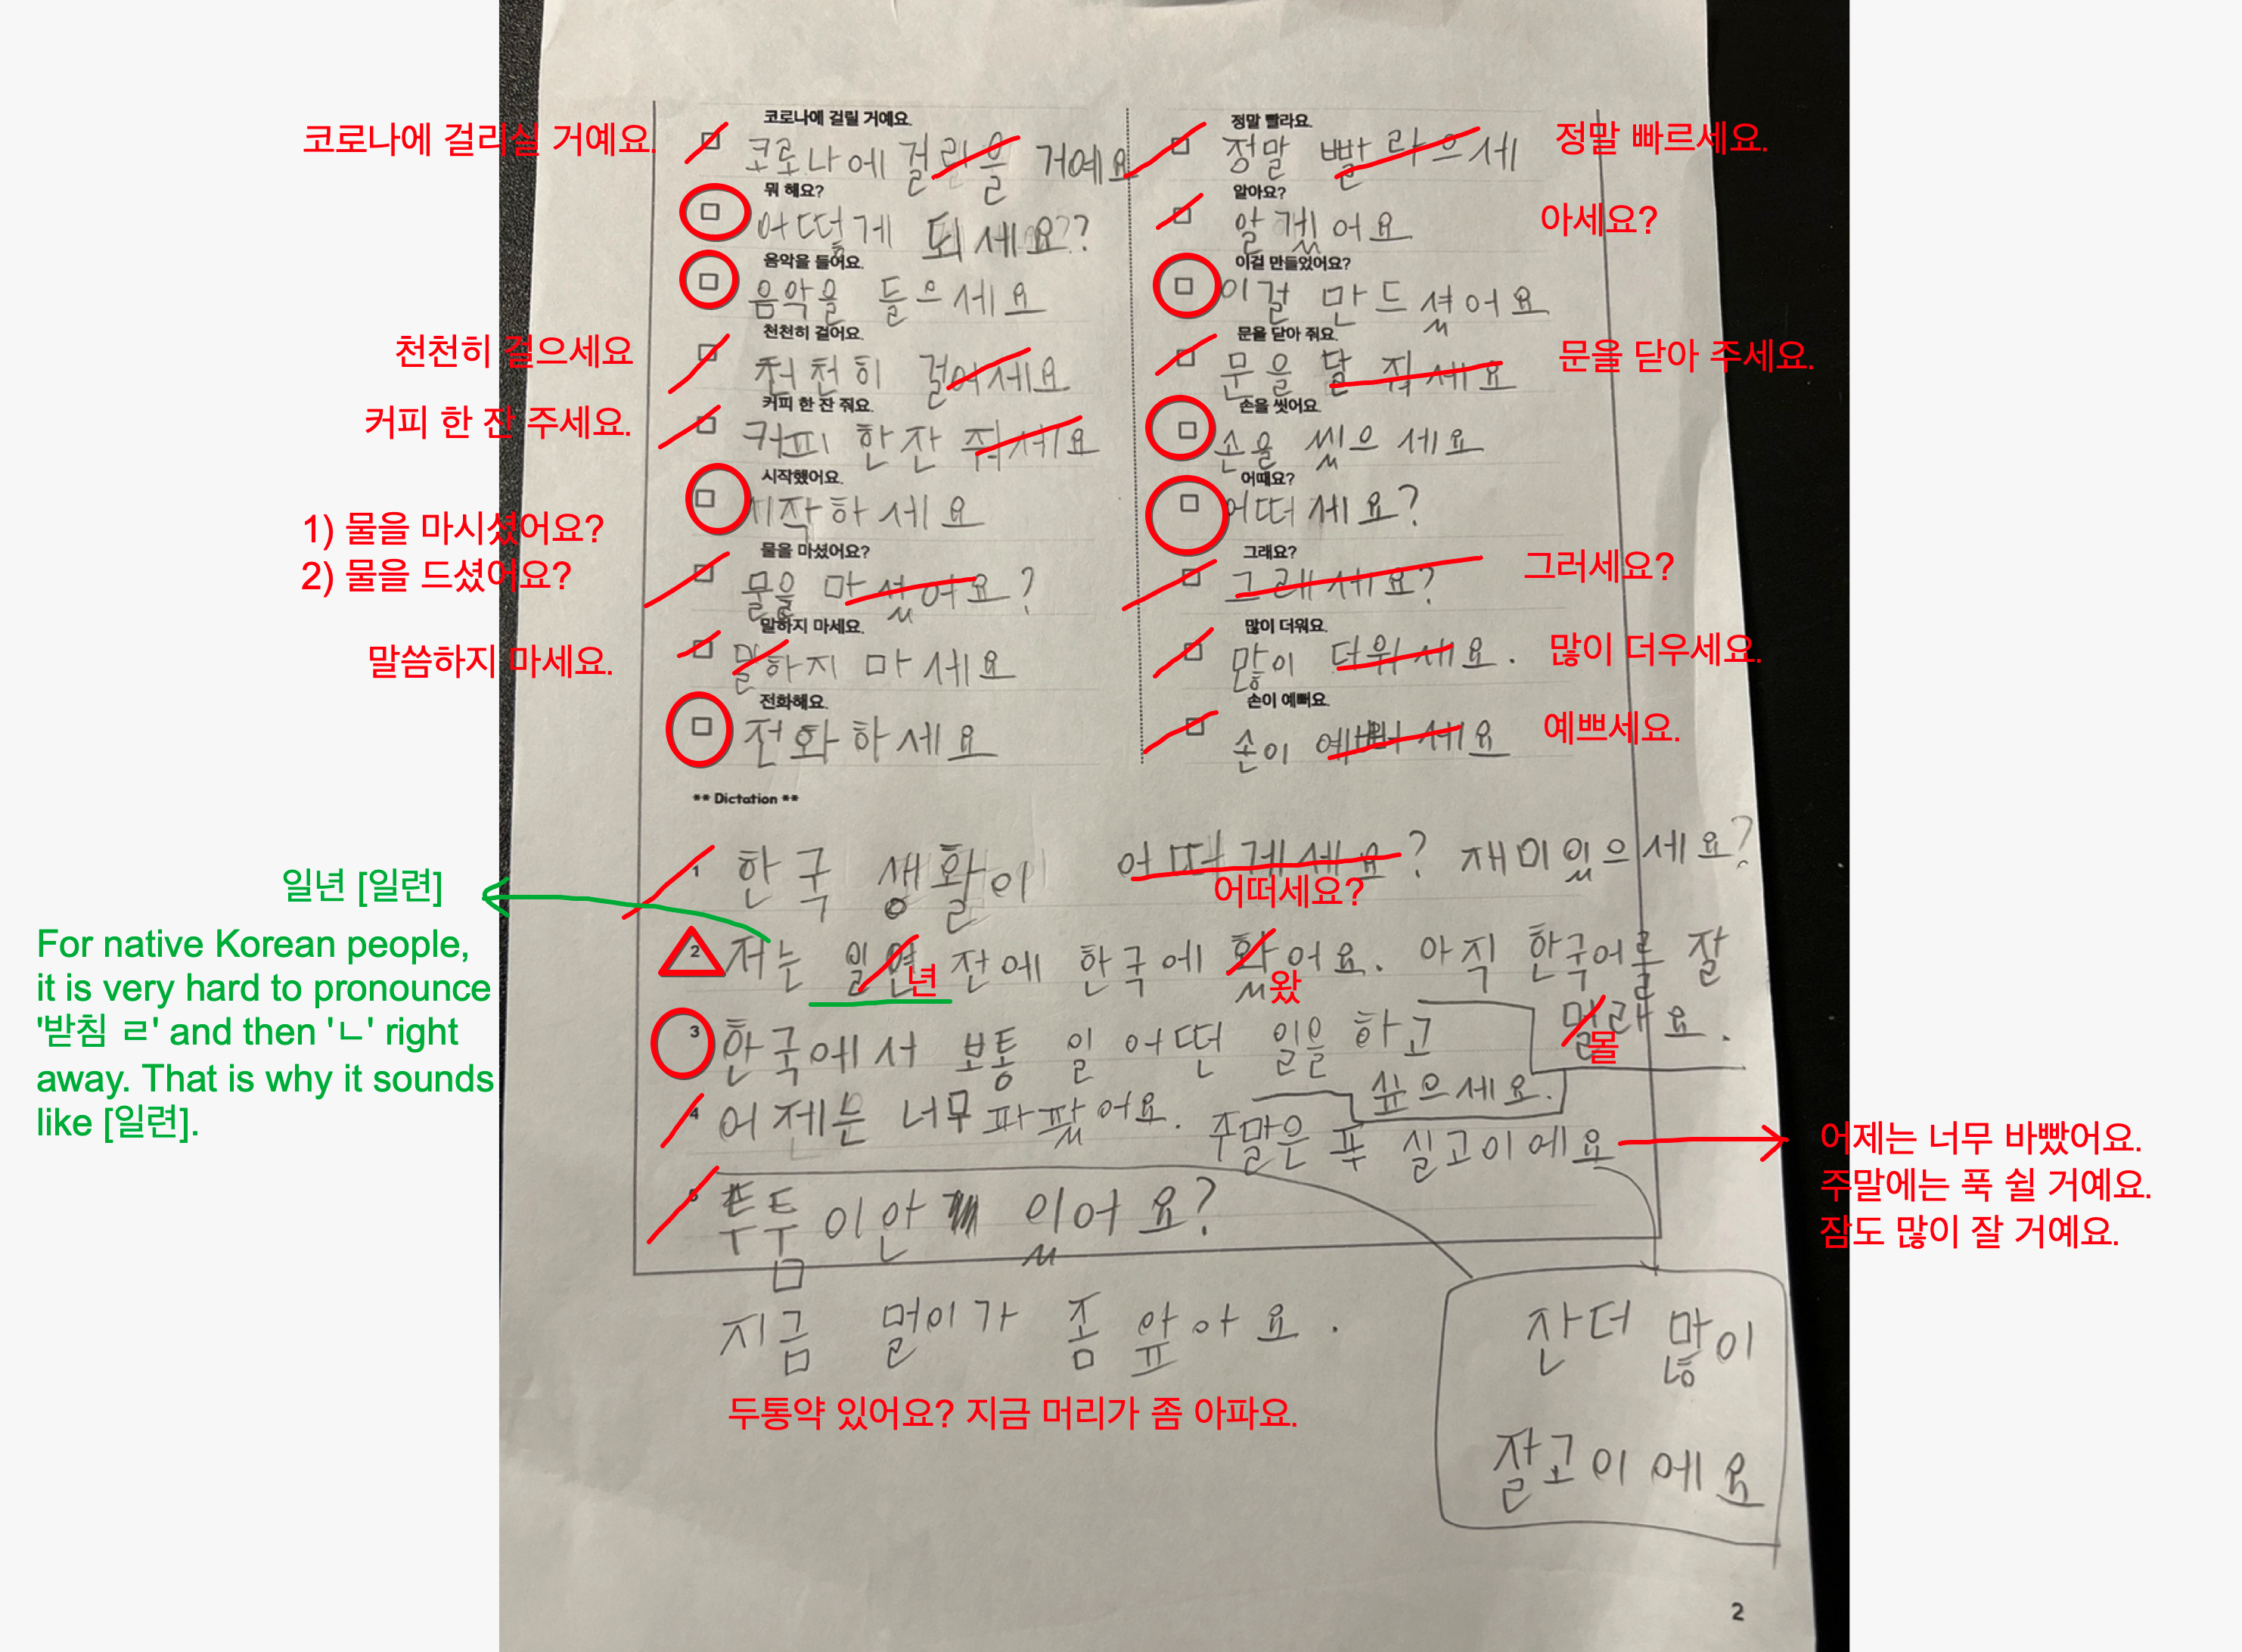 코로나에 걸릴 거예요.
코로나에 걸리실 거예요.
코로나에 걸리을 거예요
뭐 해요?
어떻게 되세요?
음악을 들어요.
음악을 들으세요
천천히 걸어요.
천천히 걸으세요
천천히 걸어세요
커피 한 잔 줘요.
커피 한 잔 주세요.
커피 한 잔 줘세요
시작했어요.
시작하세요
물을 마셨어요?
1) 물을 마시셨어요?
2) 물을 드셨어요?
물을 마셨어요?
말하지 마세요.
말씀하지 마세요.
말하지 마세요
전화해요.
전화하세요
정말 빨라요.
정말 빠르세요.
정말 빨라으세
알아요?
아세요?
알겠어요
이걸 만들었어요?
이걸 만드셨어요
문을 닫아 줘요.
문을 닫아 주세요.
문을 달 줘세요
손을 씻어요.
손을 씼으세요
어때요?
어떠세요?
그래요?
그러세요?
그래세요?
많이 더워요.
많이 더우세요.
많이 더워세요.
손이 예뻐요.
예쁘세요.
손이 예뻐세요
** Dictation **
1 한국 생활이 어떠게세요? 재미있으세요?
어떠세요?
일년 [일련]
For native Korean people,
it is very hard to pronounce
'받침 ㄹ' and then 'ㄴ' right
away. That is why it sounds
like [일련].
2 저는 일연 전에 한국에 홨어요. 아직 한국어를 잘
년 왔
멀래요.
몰
3 한국에서 보통 일 어떤 일을 하고
싶으세요.
4 어제는 너무 파팠어요. 주말은 푹 실고이에요
어제는 너무 바빴어요.
주말에는 푹 쉴 거예요.
잠도 많이 잘 거예요.
잔더 많이
잘고이에요
5 투툼이안 있어요?
지금 멀이가 좀 앞아요.
두통약 있어요? 지금 머리가 좀 아파요.
2